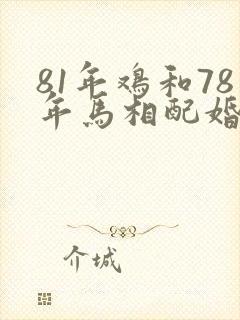 81年鸡和78
年马相配婚
介城